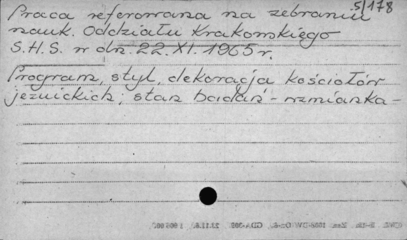 5/178
Praca referowana na zebraniu
nauk. Oddziału Krakowskiego
S.H.S. w dn. 22.XI.1965 r.
Program, styl, dekoracja kościołów
jezuickich; stan badań - wzmianka -